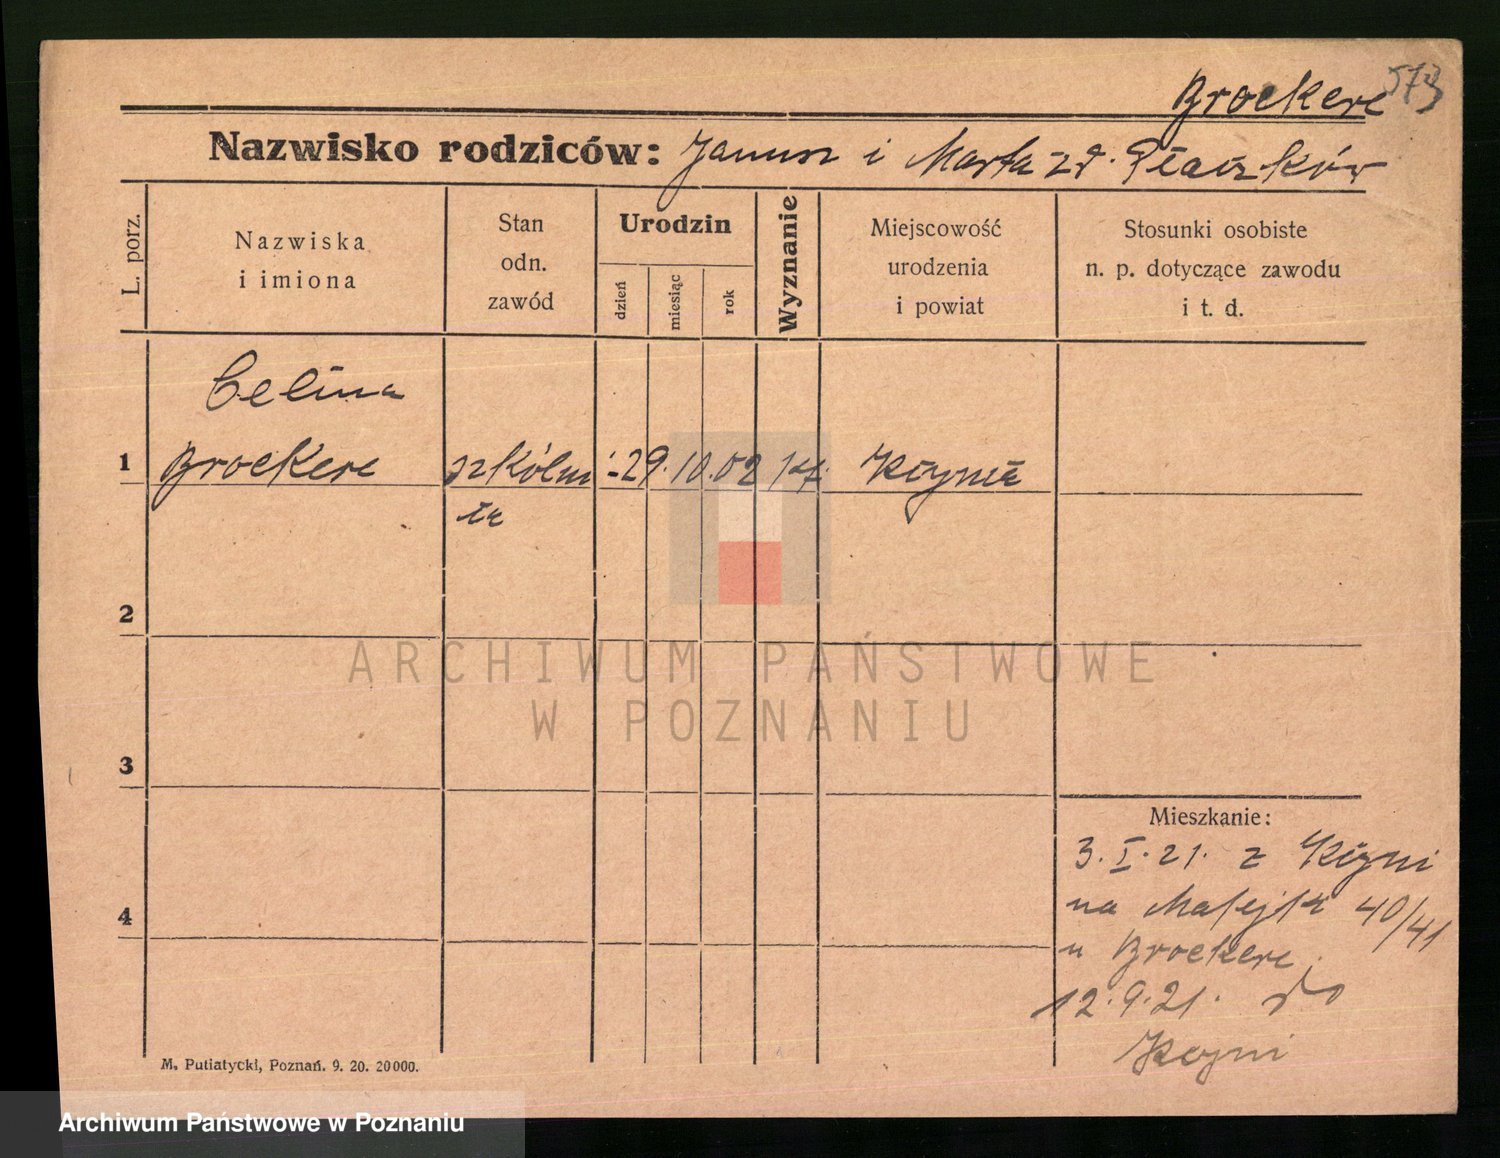 Brockere 573
Nazwisko rodziców: Janusz i Marta z d. Ptaszków
L. porz.
Nazwiska
i imiona
Stan
odn.
zawód
Urodzin
dzień
miesiąc
rok
Wyznanie
Miejscowość
urodzenia
i powiat
Stosunki osobiste
n. p. dotyczące zawodu
i t. d.
Celina
1 Brockere szkólni 29. 10. 02 kat. Kcynia
ta
2
ARCHIWUM PAŃSTWOWE
W POZNANIU
3
Mieszkanie:
3. I. 21. z Kcyni
na Matejki 40/41
u Brockere
12. 9. 21. do
Kcyni
4
M. Putiatycki, Poznań. 9. 20. 20000.
Archiwum Państwowe w Poznaniu